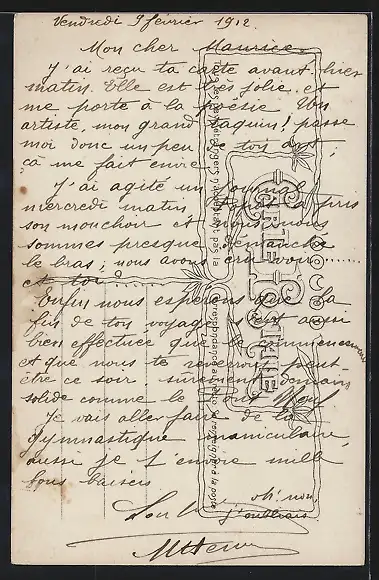 Vendredi 9 février 1912
Mon cher Maurice
J'ai reçu ta carte avant hier
matin. Elle est très jolie et
me porte à la poésie Un
artiste, mon grand taquin! passe
moi donc un peu de ton art,
ça me fait envie
J'ai agité un journal
mercredi matin a pris
son mouchoir et nous nous
sommes presque démanché
le bras; nous avons cru voir.......
et toi?
Enfin nous espérons que la
fin de ton voyage s'est aussi
bien effectuée que le commencement
et que nous te reverrons peut-
être ce soir sûrement demain
solide comme le Pont Neuf
Je vais aller faire de la
gymnastique maniculaire
aussi je t'envoie mille
bons baisers
oh! non
j'oubliais
CARTE POSTALE
Tous les pays étrangers n'acceptent pas la
correspondance au recto. Se renseigner à la poste